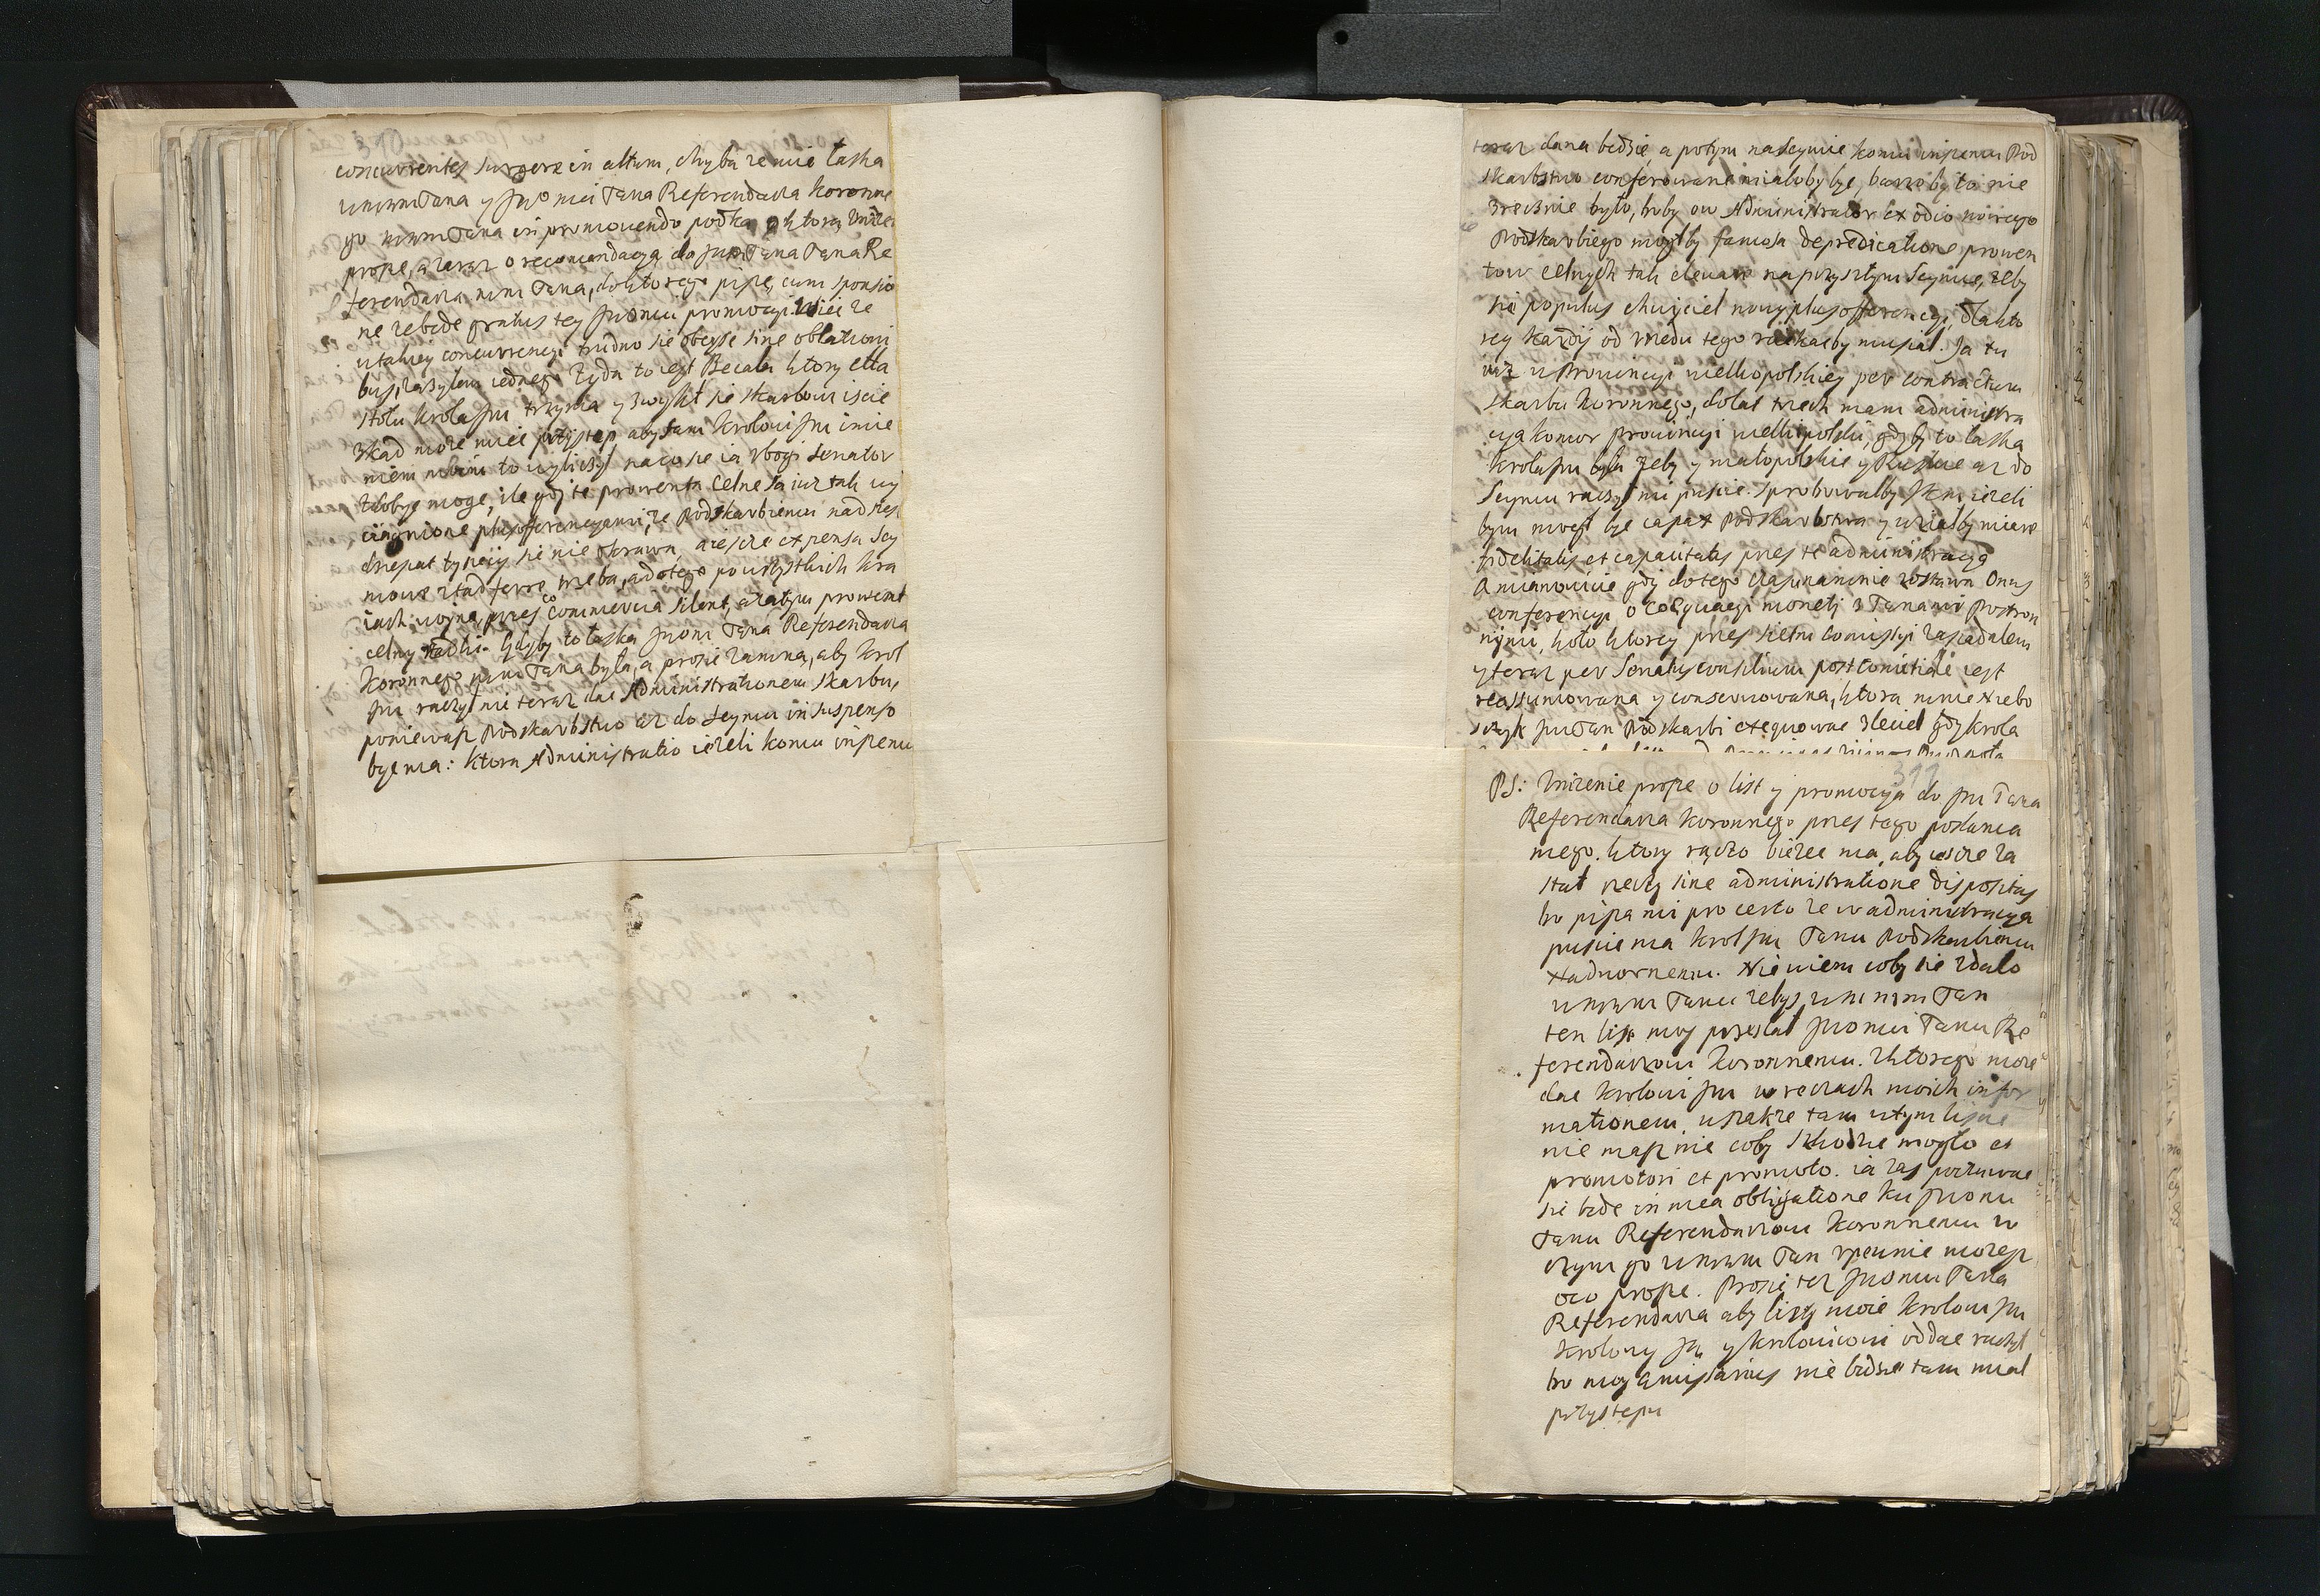 concurrentes surgere in altum, chyba ze mie łaska
WMMPana y Jmo mei Pana Referendarza Koronne
go MMMPana in promovendo podka o ktorą Unize
prosze, a zaraz o recomendacyą do JmP Pana Pana Re
ferendarza mm Pana, do ktorego pisze, cum sponsio
ne ze bede gratus tey Jmomu promocyi. Wiec ze
w takiey concurrencyi trudno sie obeysc sine oblationi
bus, zazylem iednego Zyda to iest Becala ktory cła
stołu Krola Jm trzyma y zwykł sie skarbowi iscic
Zkad moze miec przystęp aby sam Krolowi Jm imie
niem moim to wyliczył na co sie ia ubogi Senator
zdobyc moge, ile gdy te prowenta Celne sa iuz tak wy
ciągnione plusofferencyami, ze Podskarbiemu nad szes
dziesiat tysięcy sie nie okrawa, a iescze expensa Sey
mowe ztad ferre trzeba, a do tego po wszystkich kra
iach woyna, przes co commercia silent, a zatym prowent
celny rzadki. Gdyby to łaska Jmomi Pana Referendarza
Koronnego mmm Pana była, a prosie zamna, aby Krol
Jm raczył mie teraz dac Administrationem Skarbu,
poniewasz Podskarbstwo az do Seymu in suspenso
byc ma: ktora Administratio iezeli komu inszemu
teraz dana bedzie, a potym na seymie komu inszemu Pod
skarbstwo conferowane miałoby byc, barzoby to nie
zrecznie było, boby ow Administrator ex odio nowego
Podskarbiego mogłby famosa depredicatione prowen
tow celnych tak elevare na przyszłym Seymie, zeby
sie populus chwyciel nowy plusofferencyi, dla kto
rey kazdy od urzedu tego uciekacby musiał. Ja tu
iuz w Prowincyi wielkopolskiey per contractum
skarbu Koronnego, do lat trzech mam administra
cyą komor prowincyi wielkopolski, gdyby to łaska
Krola Jm była zeby y małopolskie y Ruskie az do
Seymu raczył mi puscic. Sprobowałby Jkm iezeli
bym mogł byc capax Podskarbstwa y wziałby miare
fidelitatis et capacitatis pres te administracyą
A mianowicie gdy do tego czasu na mnie zostawa Onus
conferencyi o coequacyi monety z Panami Postron
nymi, koło ktorey pres siedm Comissyi zasiadałem
y teraz per Senatus consilium post comitiale iest
reassumowana y conserwowana, ktora mnie trzebo
Jm Pan Podskarbi exequowac zlecel gdy Krola
PS: Unizenie prosze o list y promocyą do Jm Pana
Referendarza Koronnego pres tego posłanca
mego. ktory rączo bieżec ma, aby iescze za
stał rzeczy sine administratione dispositas
bo pisza mi pro certo ze w administracyą
puscic ma Krol Jm Panu Podskarbiemu
Nadwornemu. Nie wiem coby sie zdało
WMMM Panu zebys WM MM Pan
ten list moy przesłał Jmomu Panu Re
ferendarzowi Koronnemu. Z ktorego moze
dac Krolowi Jm w rzeczach moich infor
mationem. wszakze tam w tym liscie
nie masz nic coby szkodzic mogło et
promotori et promoto. ia zas poczuwac
sie bede in mea obligatione ku Jmomu
Panu Referendarzowi Koronnemu w
czym go WMMM Pan upewnic mozesz
oco prosze. Prosze tez Jmomu Pana
Referendarza aby listy moie Krolowi Jm
Krolowy Jm y Krolewicowi oddac raczył
bo moy Emissarius nie bedzie tam miał
przystępu